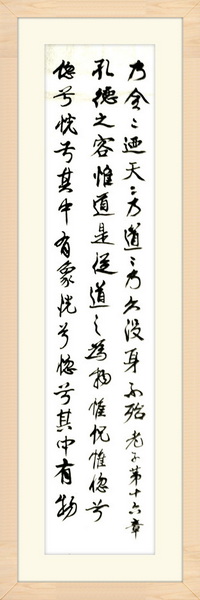 乃全〻迺天〻乃道〻乃久没身不殆老子第十六章
孔德之容惟道是從道之為物惟恍惟惚兮
惚兮恍兮其中有象恍兮惚兮其中有物